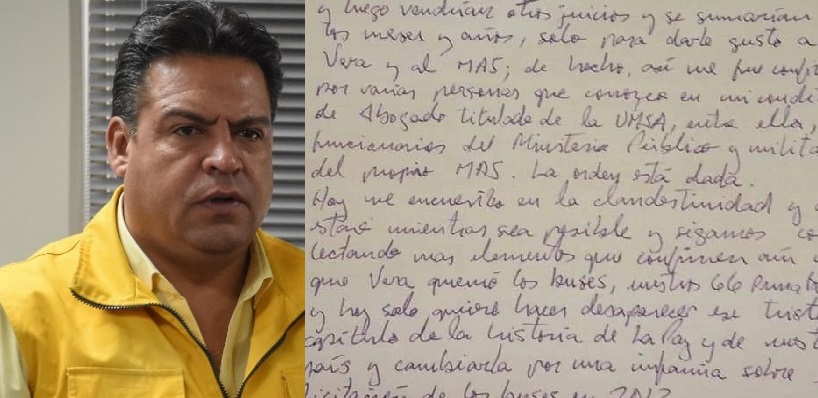 y luego vendrían otros juicios y se sumarían
los meses y años, solo para darle gusto a
Vera y al MAS; de hecho, así me fue confi
por varias personas que conozco en mi condi
de Abogado titulado de la UMSA, entre ella,
funcionarios del Ministerio Público y milita
del propio MAS. La orden está dada.
Hoy me encuentro en la clandestinidad y a
estaré mientras sea posible y sigamos co
lectando mas elementos que confirmen aún
que Vera quemó los buses, nuestros 66 Puma
y hoy solo quiere hacer desaparecer ese trist
capítulo de la historia de La Paz y de nuest
país y cambiarla por una infamia sobre
licitación de los buses en 2012